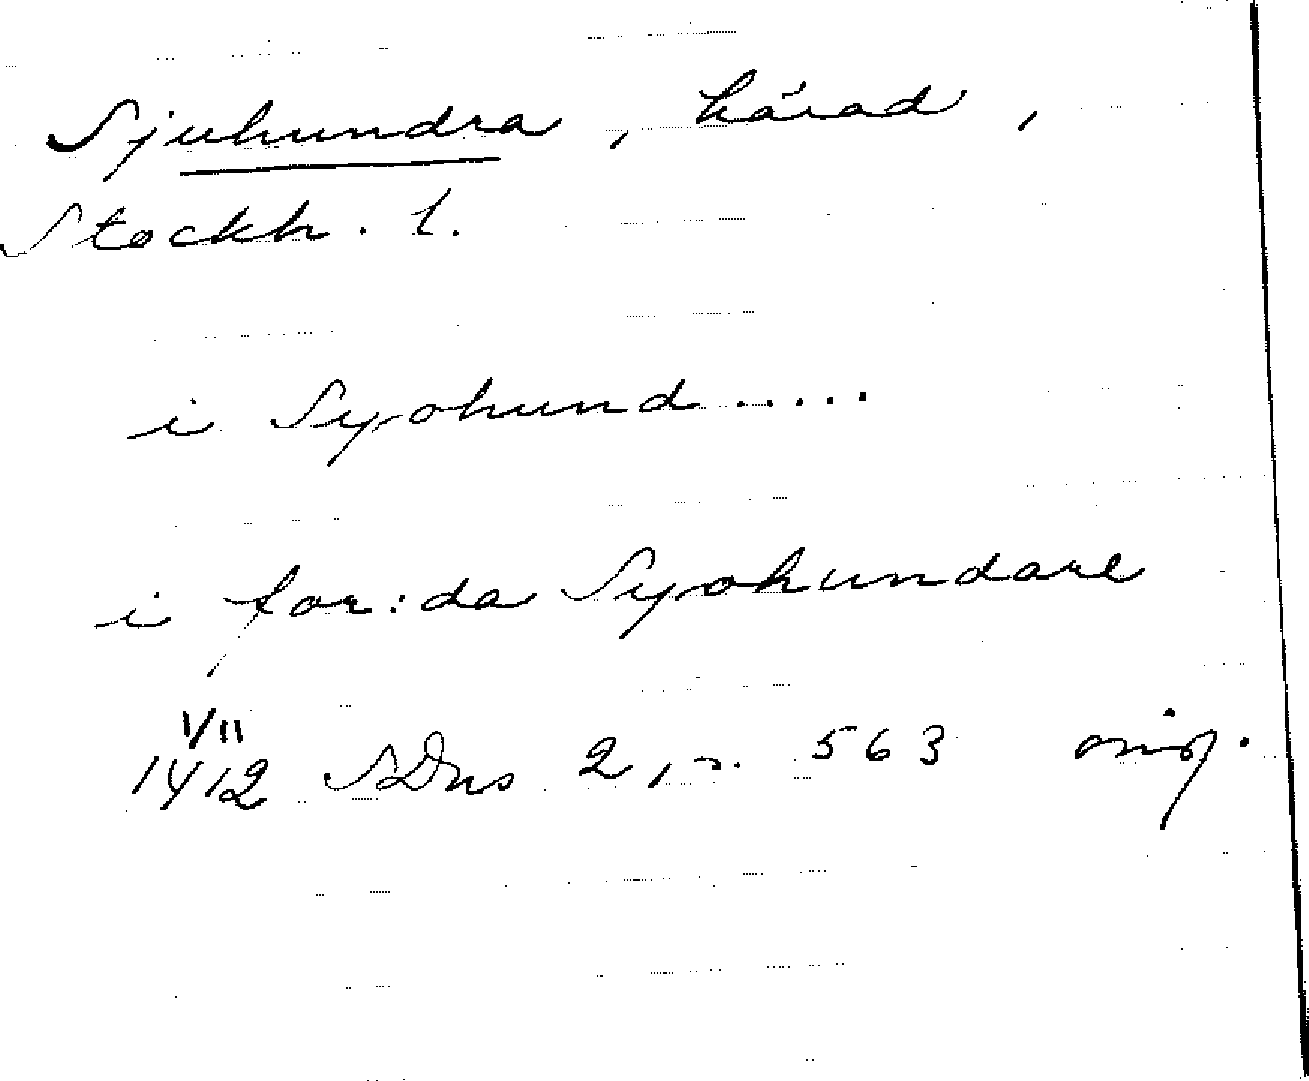 Sjuhundra, härad,
Stockh. l.
i Syohund.....
i for:da Syohundare
1/11
1412 SDns 2, n. 563 orig.